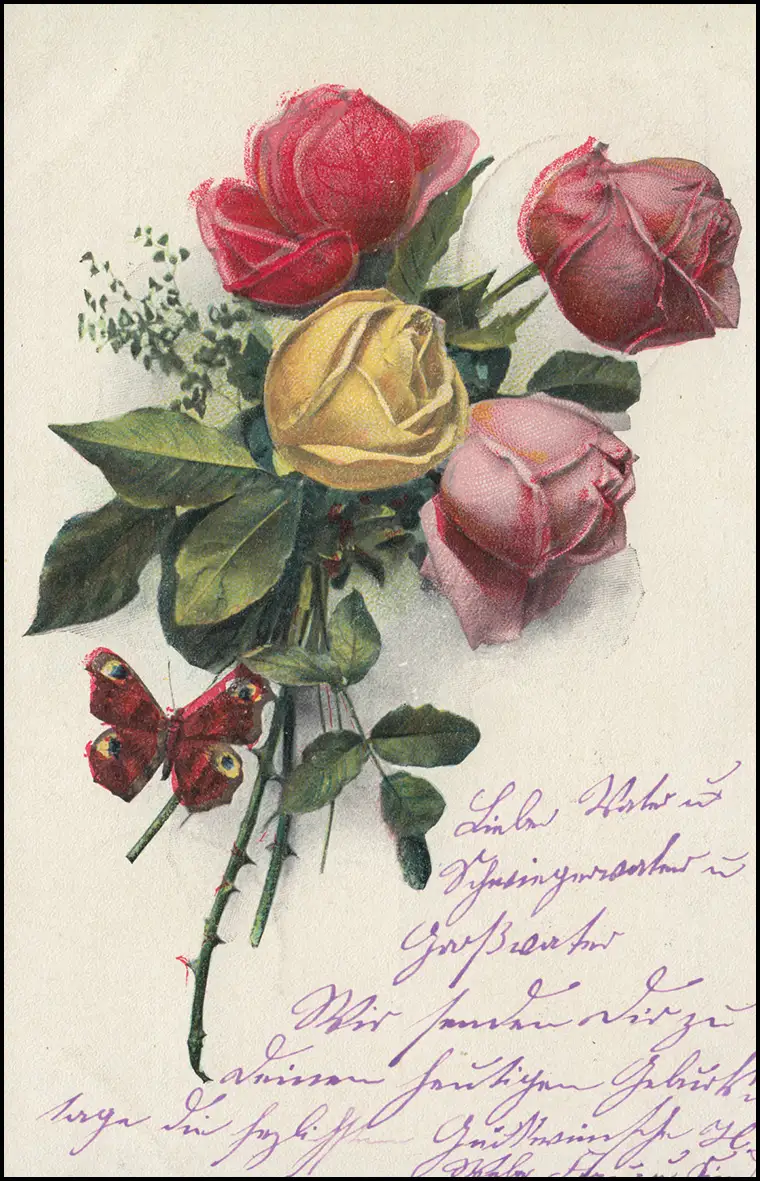 Lieber Vater u
Schwiegervater u
Großvater
Wir senden Dir zu
Deinem heutigen Geburts
tage die hezlichsten Glückwünsche